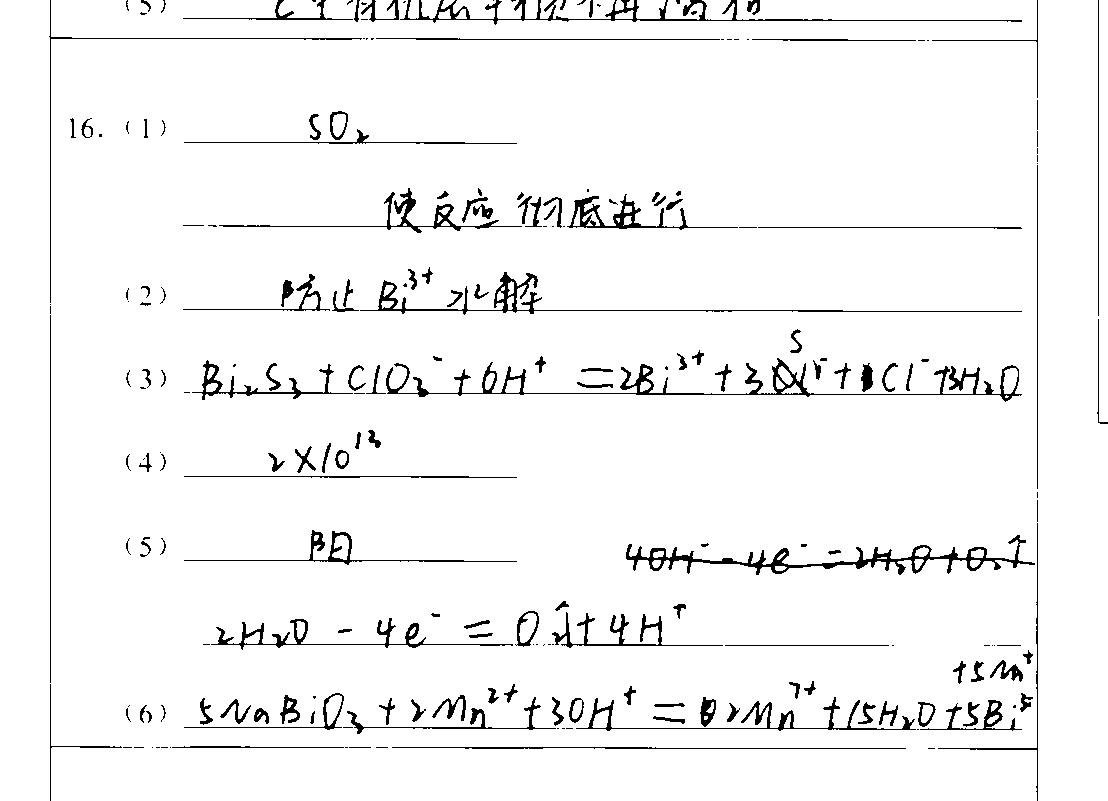 (5)
16. (1) SO₂
使反应彻底进行
(2) 防止 Bi³⁺ 水解
(3) Bi₂S₃ + ClO₃⁻ + 6H⁺ = 2Bi³⁺ + 3S + Cl⁻ + 3H₂O
(4) 2×10¹³
(5) 阳 4OH⁻ - 4e⁻ = 2H₂O + O₂↑
2H₂O - 4e⁻ = O₂↑ + 4H⁺
+5Na⁺
(6) 5NaBiO₃ + 2Mn²⁺ + 30H⁺ = 2Mn⁷⁺ + 15H₂O + 5Bi